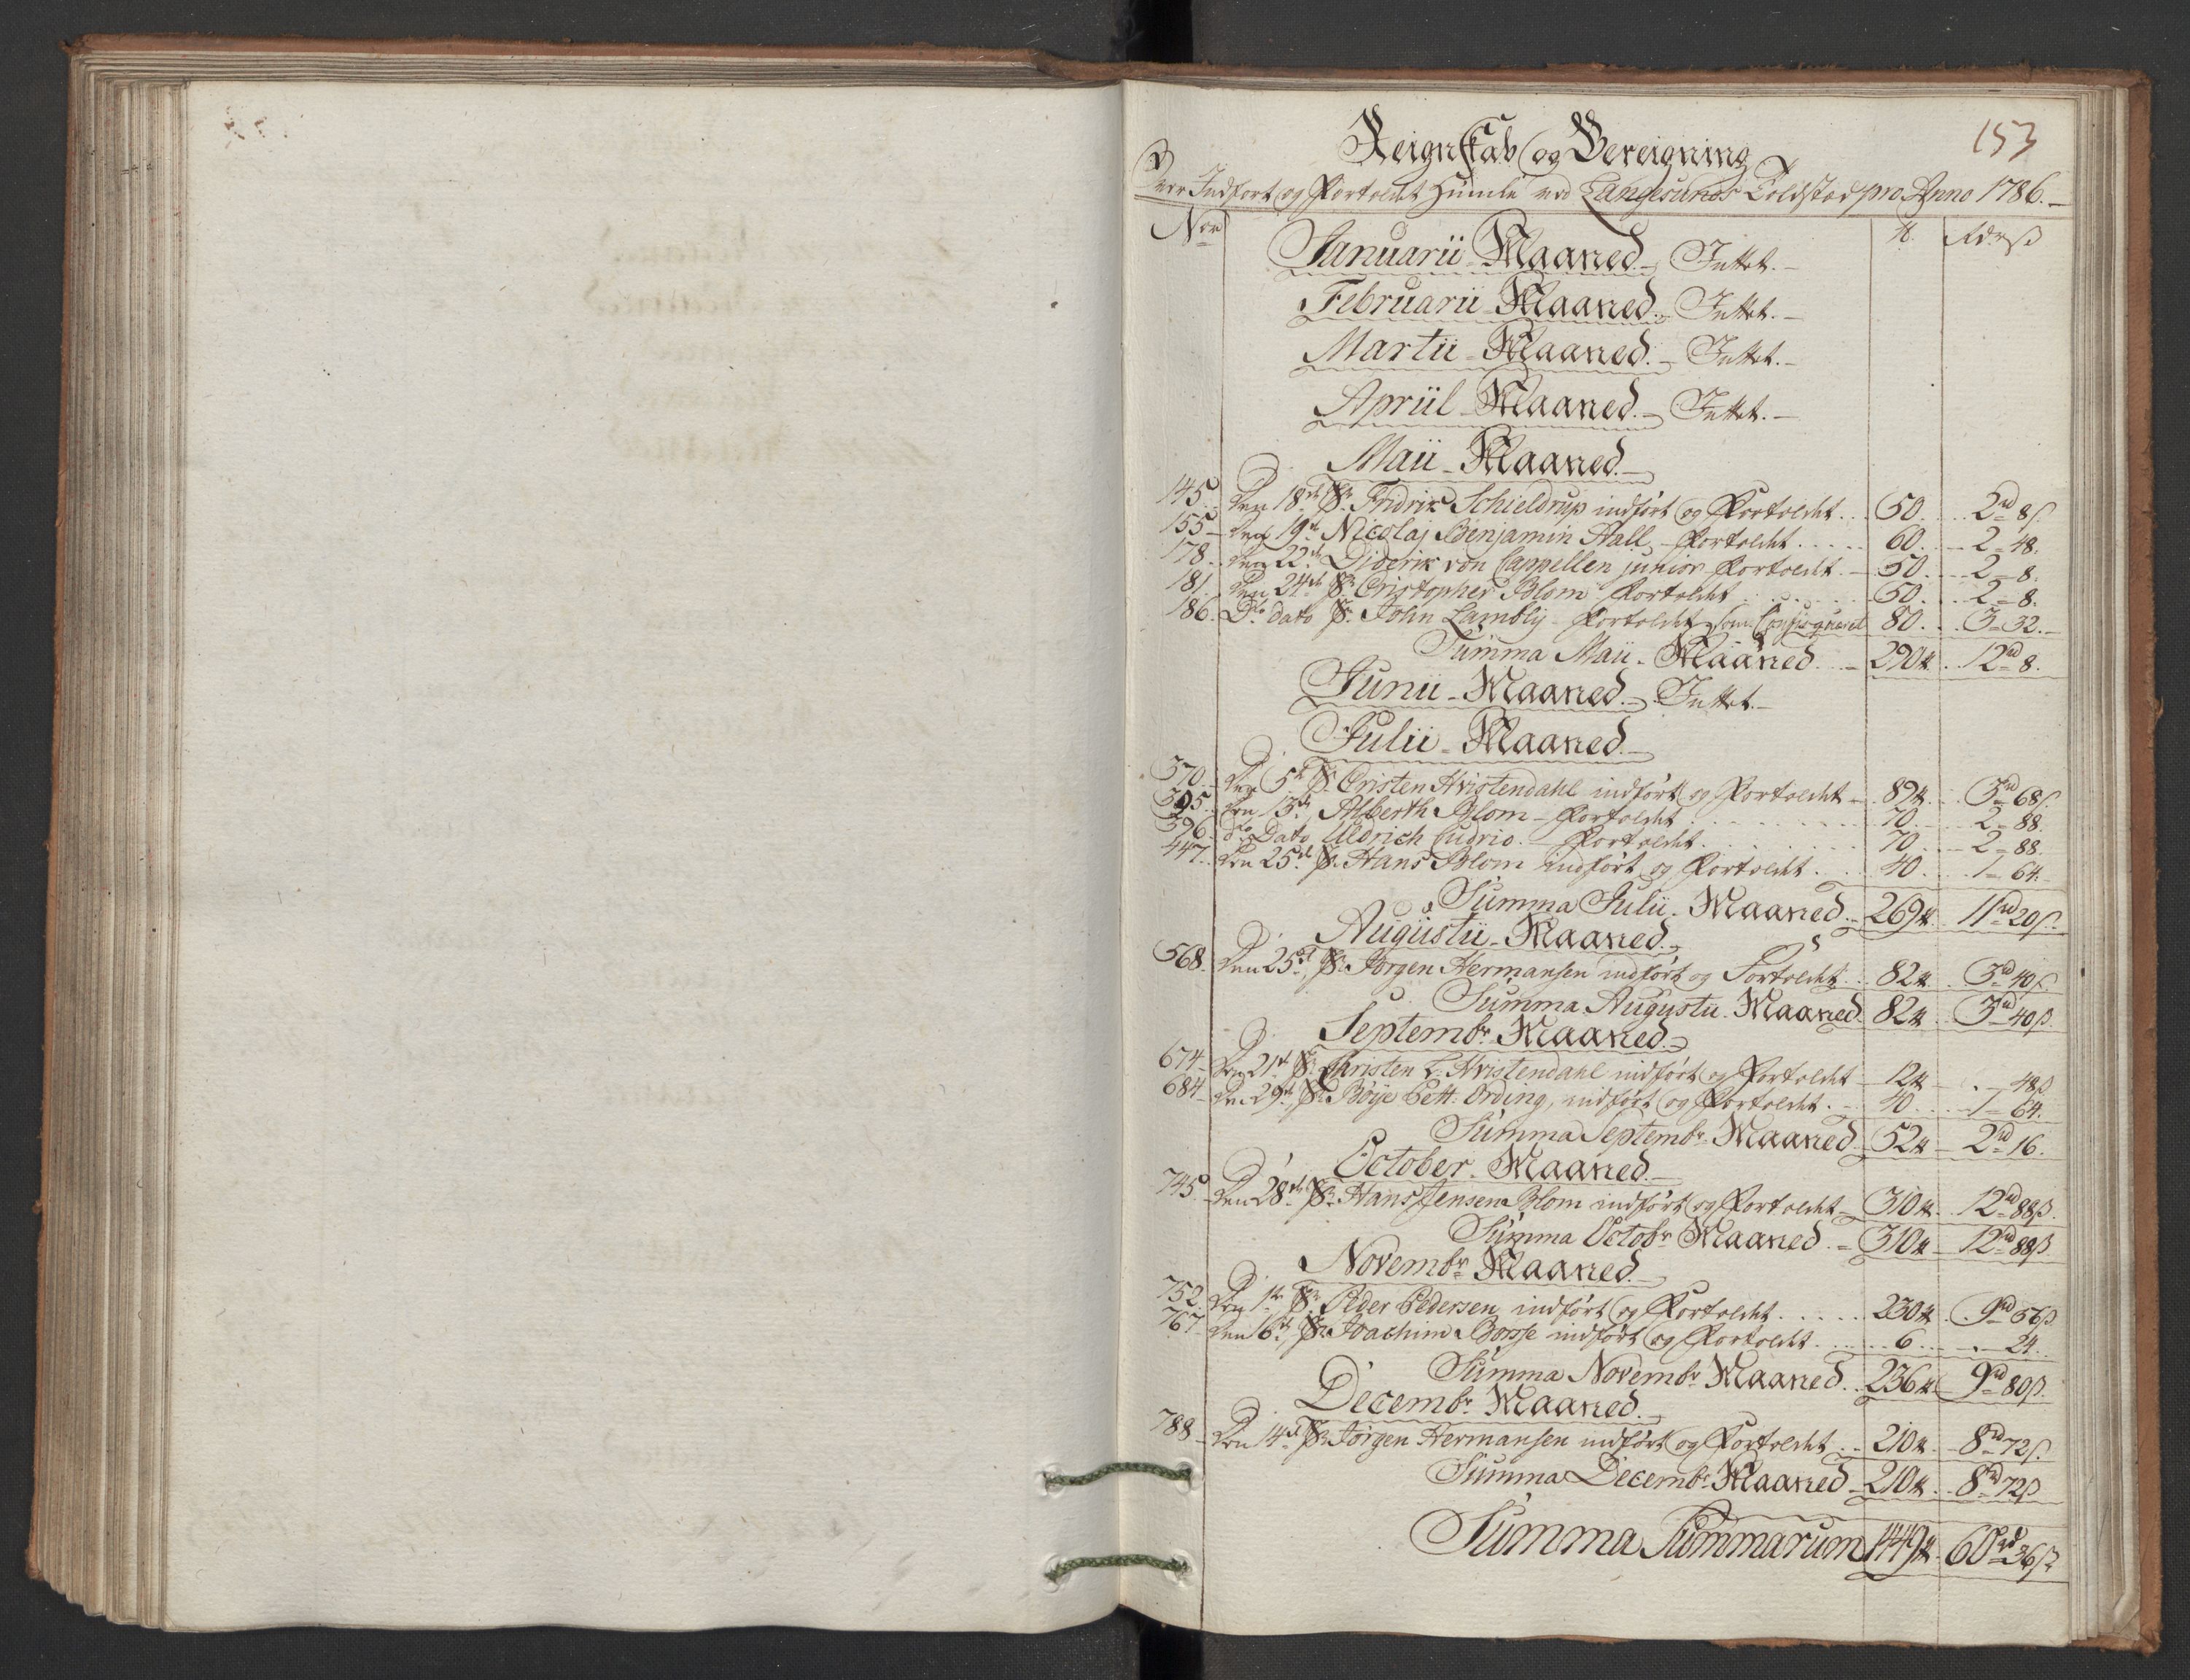 153
Reignskab og Bereigning
Over Indført og Fortoldet Humle ved Langesunds Toldstæd pro Anno 1786.
No
℔. Rdr ß
Januarii Maaned. Intet.
Februarii Maaned. Intet.
Martii Maaned. Intet.
Apriil Maaned. Intet.
Maii Maaned.
145. Den 18de Sr. Fridrik Schieldrup indført og Fortoldet 50. 2rd 8ß.
155 Den 19de Nicolaj Benjamin Aall Fortoldet 60. 2 - 48.
178. Den 22de Diderik von Cappellen junior Fortoldet 50. 2 - 8.
181. Den 24de Sr. Cristopher Blom Fortoldet 50. 2 - 8.
186. Do dato Sr. John Lambly Fortoldet som Confisqueret 80. 3 - 32.
Summa Maii Maaned 290℔. 12rd 8.
Junii Maaned. Intet.
Julii Maaned.
370. Den 5te Sr. Cristen Hvistendahl indført og Fortoldet 89℔. 3rd 68ß.
395. Den 13de Alberth Blom Fortoldet 70. 2 - 88.
396. do Dato Uldrich Cudrio. Fortoldet 70. 2 - 88.
447. Den 25de Sr. Hans Blom indført og Fortoldet 40. 1 - 64.
Summa Julii Maaned 269℔. 11rd 20ß.
Augustii Maaned.
568. Den 25de Sr. Jørgen Hermansen indført og Fortoldet 82℔. 3rd 40ß.
Summa Augustii Maaned 82℔. 3rd 40ß.
Septembr. Maaned.
674. Den 21de Sr. Christen L. Hvistendahl indført og Fortoldet 12℔ - 48ß
684 Den 29de Sr. Böye Pett: Ording, indført og Fortoldet 40. 1 - 64.
Summa Septembr. Maaned 52℔ 2rd 16.
October Maaned.
745. Den 28de Sr. Hans Jensen Blom indført og Fortoldet 310℔. 12rd 88ß.
Summa Octobr Maaned 310℔ 12rd 88ß.
Novembr Maaned.
752. Den 1te Sr. Peder Pedersen indført og Fortoldet 230℔. 9rd 56ß.
767 Den 6te Sr. Joachim Borse indført og Fortoldet 6. - 24.
Summa Novembr Maaned 236℔ 9rd 80ß.
Decembr. Maaned.
788 Den 14de Sr. Jørgen Hermansen indført og Fortoldet 210℔. 8rd 72ß.
Summa Decembr Maaned 210℔. 8rd 72ß
Summa Summarum 1449℔. 60rd 36ß.